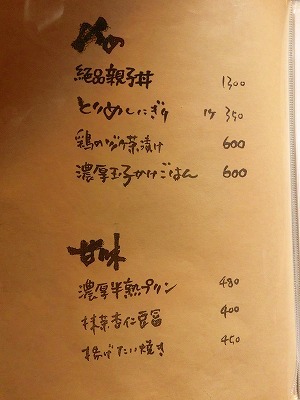 〆の
絶品親子丼 1300
とりめしにぎり 1ケ 350
鶏のダシ茶漬け 600
濃厚玉子かけごはん 600
甘味
濃厚半熟プリン 480
抹茶杏仁豆冨 400
揚げたい焼き 450